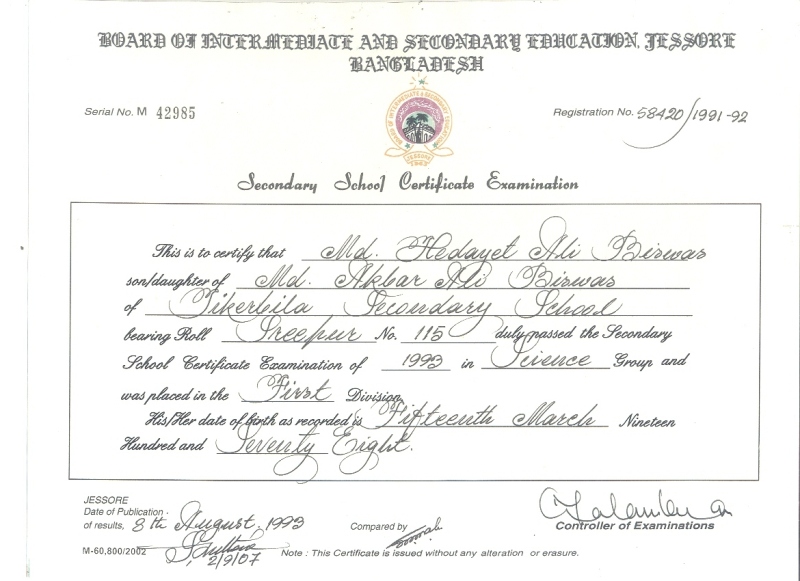 BOARD OF INTERMEDIATE AND SECONDARY EDUCATION, JESSORE
BANGLADESH
Serial No. M 42985
Registration No. 58420/1991-92
BOARD OF INTERMEDIATE & SECONDARY EDUCATION
JESSORE
1963
Secondary School Certificate Examination
This is to certify that Md. Hedayet Ali Biswas
son/daughter of Md. Akbar Ali Biswas
of Tikerbila Secondary School
bearing Roll Sreepur No. 115 duly passed the Secondary
School Certificate Examination of 1993 in Science Group and
was placed in the First Division.
His/Her date of birth as recorded is Fifteenth March Nineteen
Hundred and Seventy Eight.
JESSORE
Date of Publication
of results, 8th August, 1993
Compared by
Controller of Examinations
M-60,800/2002
2/9/07
Note : This Certificate is issued without any alteration or erasure.